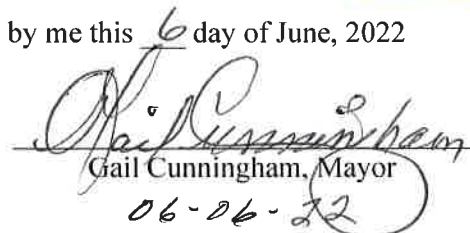 by me this 6 day of June, 2022
Gail Cunningham
Gail Cunningham, Mayor
06-06-22